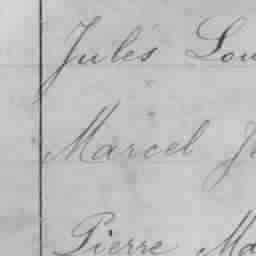 Jules Lou
Marcel J
Pierre Ma